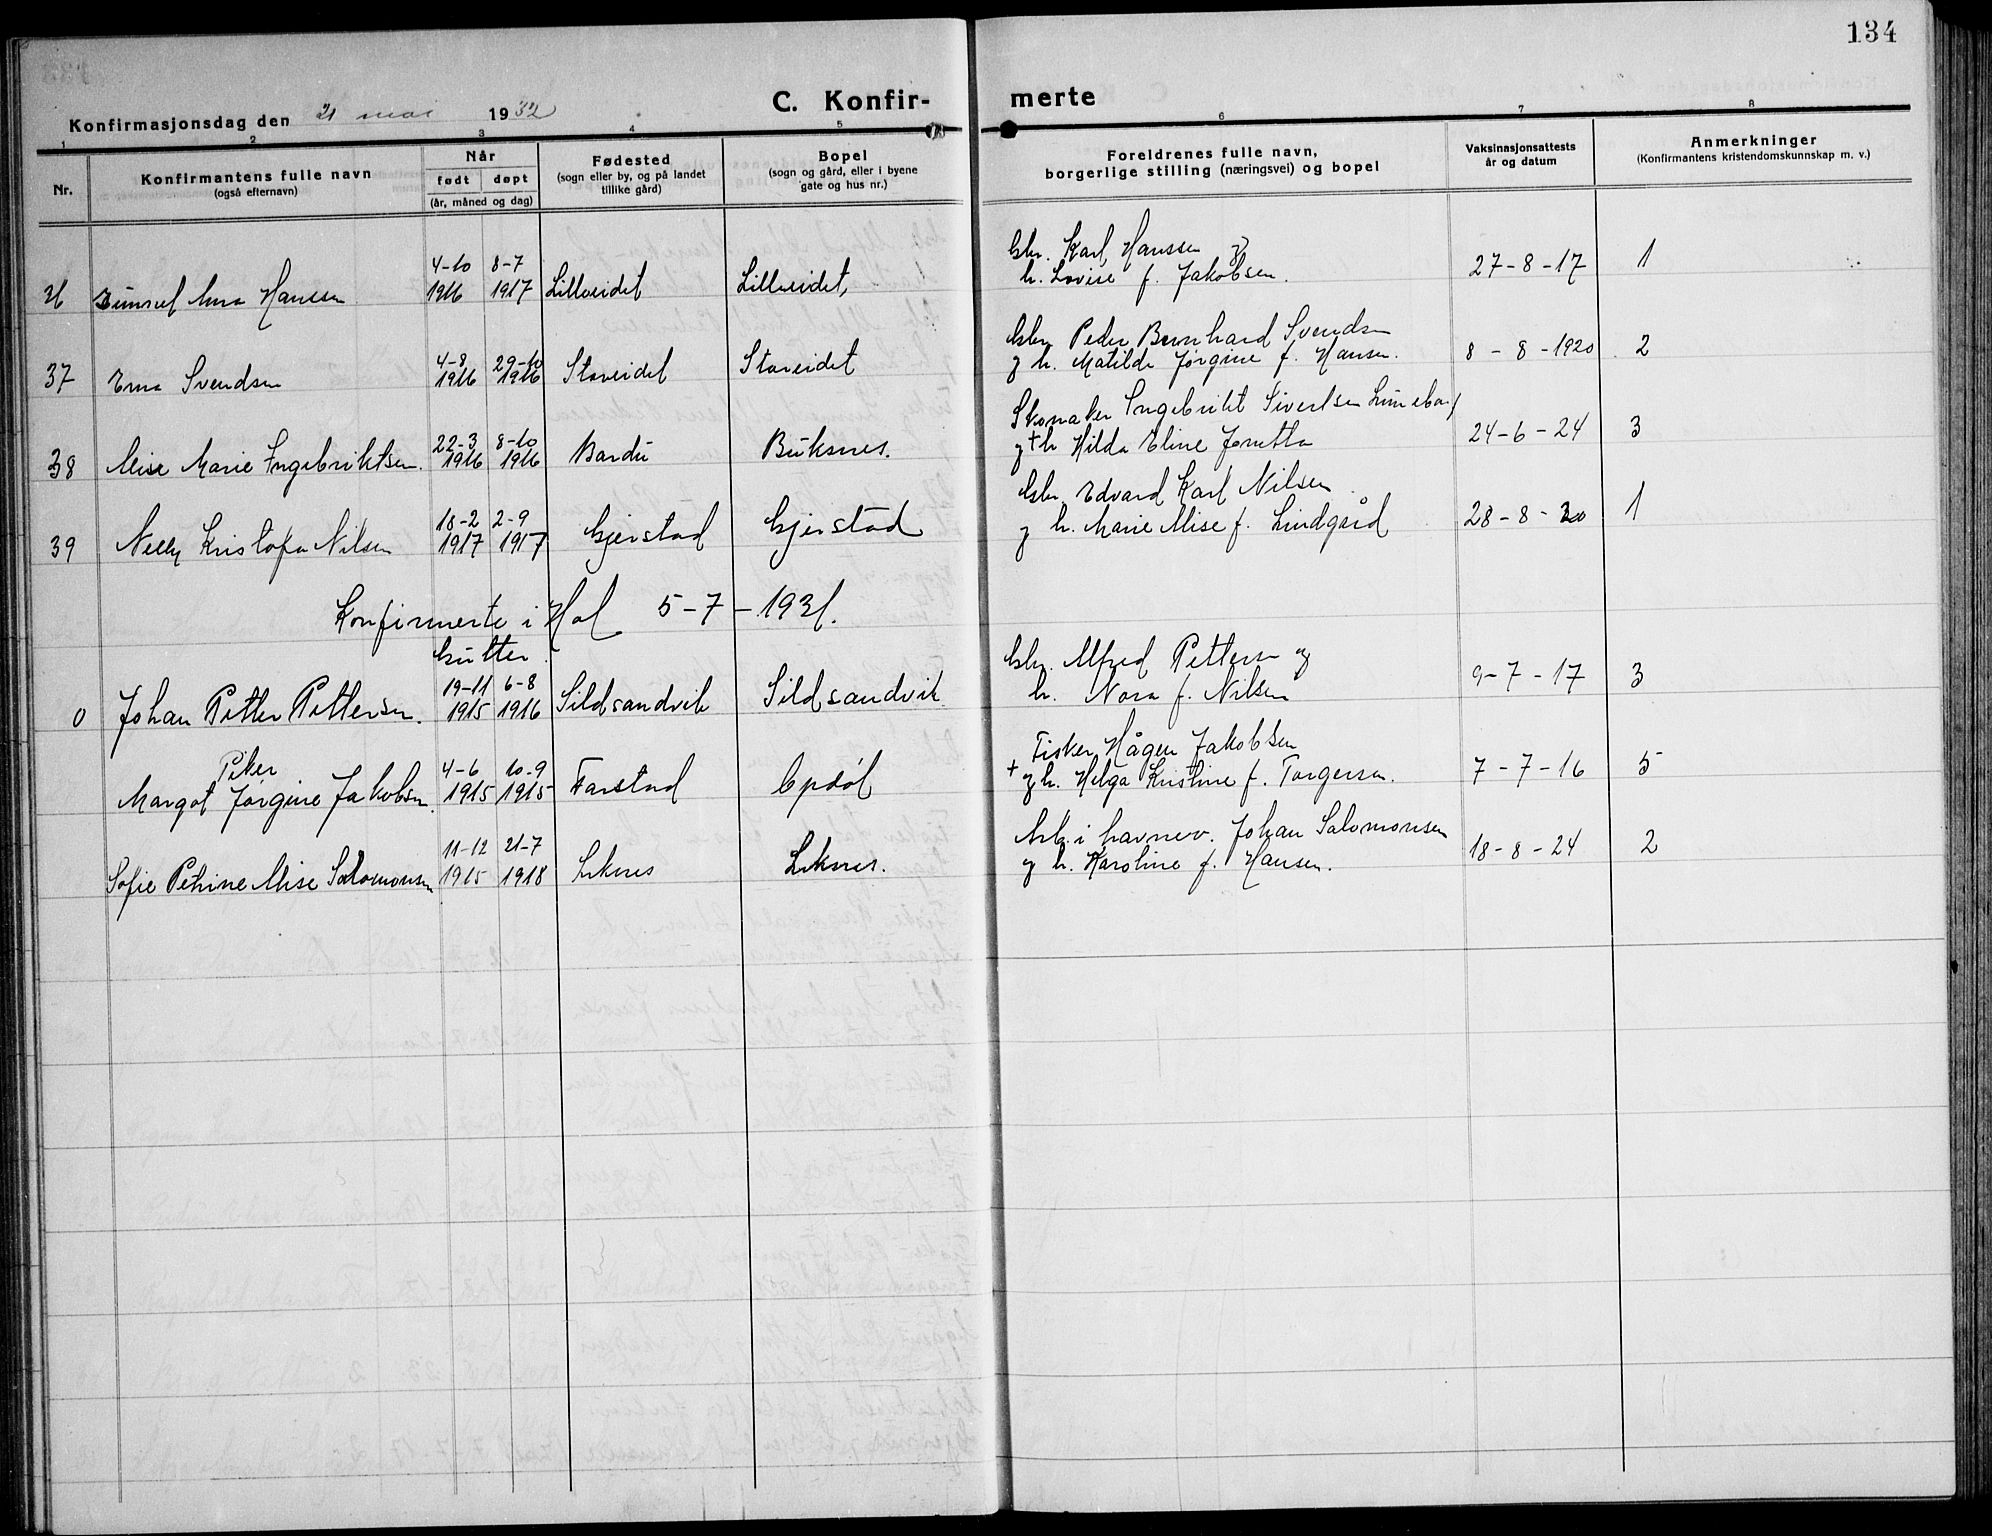 134
C. Konfir- merte
Konfirmasjonsdag den 21 mai 1932
1 2 3 4 5 6 7 8
Nr.
Konfirmantens fulle navn
(også efternavn)
Når
født døpt
(år, måned og dag)
Fødested
(sogn eller by, og på landet
tillike gård)
Bopel
(sogn og gård, eller i byene
gate og hus nr.)
Foreldrenes fulle navn,
borgerlige stilling (næringsvei) og bopel
Vaksinasjonsattests
år og datum
Anmerkninger
(Konfirmantens kristendomskunnskap m. v.)
4-10 8-7 Gbr. Karl Hanssen og
Anna Hanssen 1916 1917 Lilleeidet Lilleeidet, h. Lovise f. Jakobsen. 27-8-17 1
4-8 29-10 Gbr. Peder Bernhard Svendsen
37 Erna Svendsen 1916 1916 Storeidet Storeidet og h. Matilde Jørgine f. Hansen. 8-8-1920 2
22-3 8-10 Skomaker Ingebrikt Sivertsen
38 Alise Marie Ingebriktsen. 1916 1916 Bardu Buksnes. og + h Hilda Eline Jonetta 24-6-24 3
18-2 2-9 Gbr. Edvard Karl Nilsen
39 Nelly Kristofa Nilsen 1917 1917 Gjerstad Gjerstad og h. Marie Alise f. Lindgård 28-8-20 1
Konfirmerte i Hol 5-7-1931.
Gutter
19-11 6-8 Gbr. Alfred Pettersen og
0 Johan Petter Pettersen. 1915 1916 Sildsandvik Sildsandvik h. Nora f. Nilsen 9-7-17 3
Piker
4-6 10-9 + Fisker Hågen Jakobsen
Margot Jørgine Jakobsen 1915 1915 Farstad Opdøl og h. Helga Kristine f. Torgersen. 7-7-16 5
11-12 21-7 Arb. i havnev. Johan Salomonsen
Sofie Petrine Alise Salomonsen 1915 1918 Leknes Leknes. og h. Karoline f. Hansen. 18-8-24 2